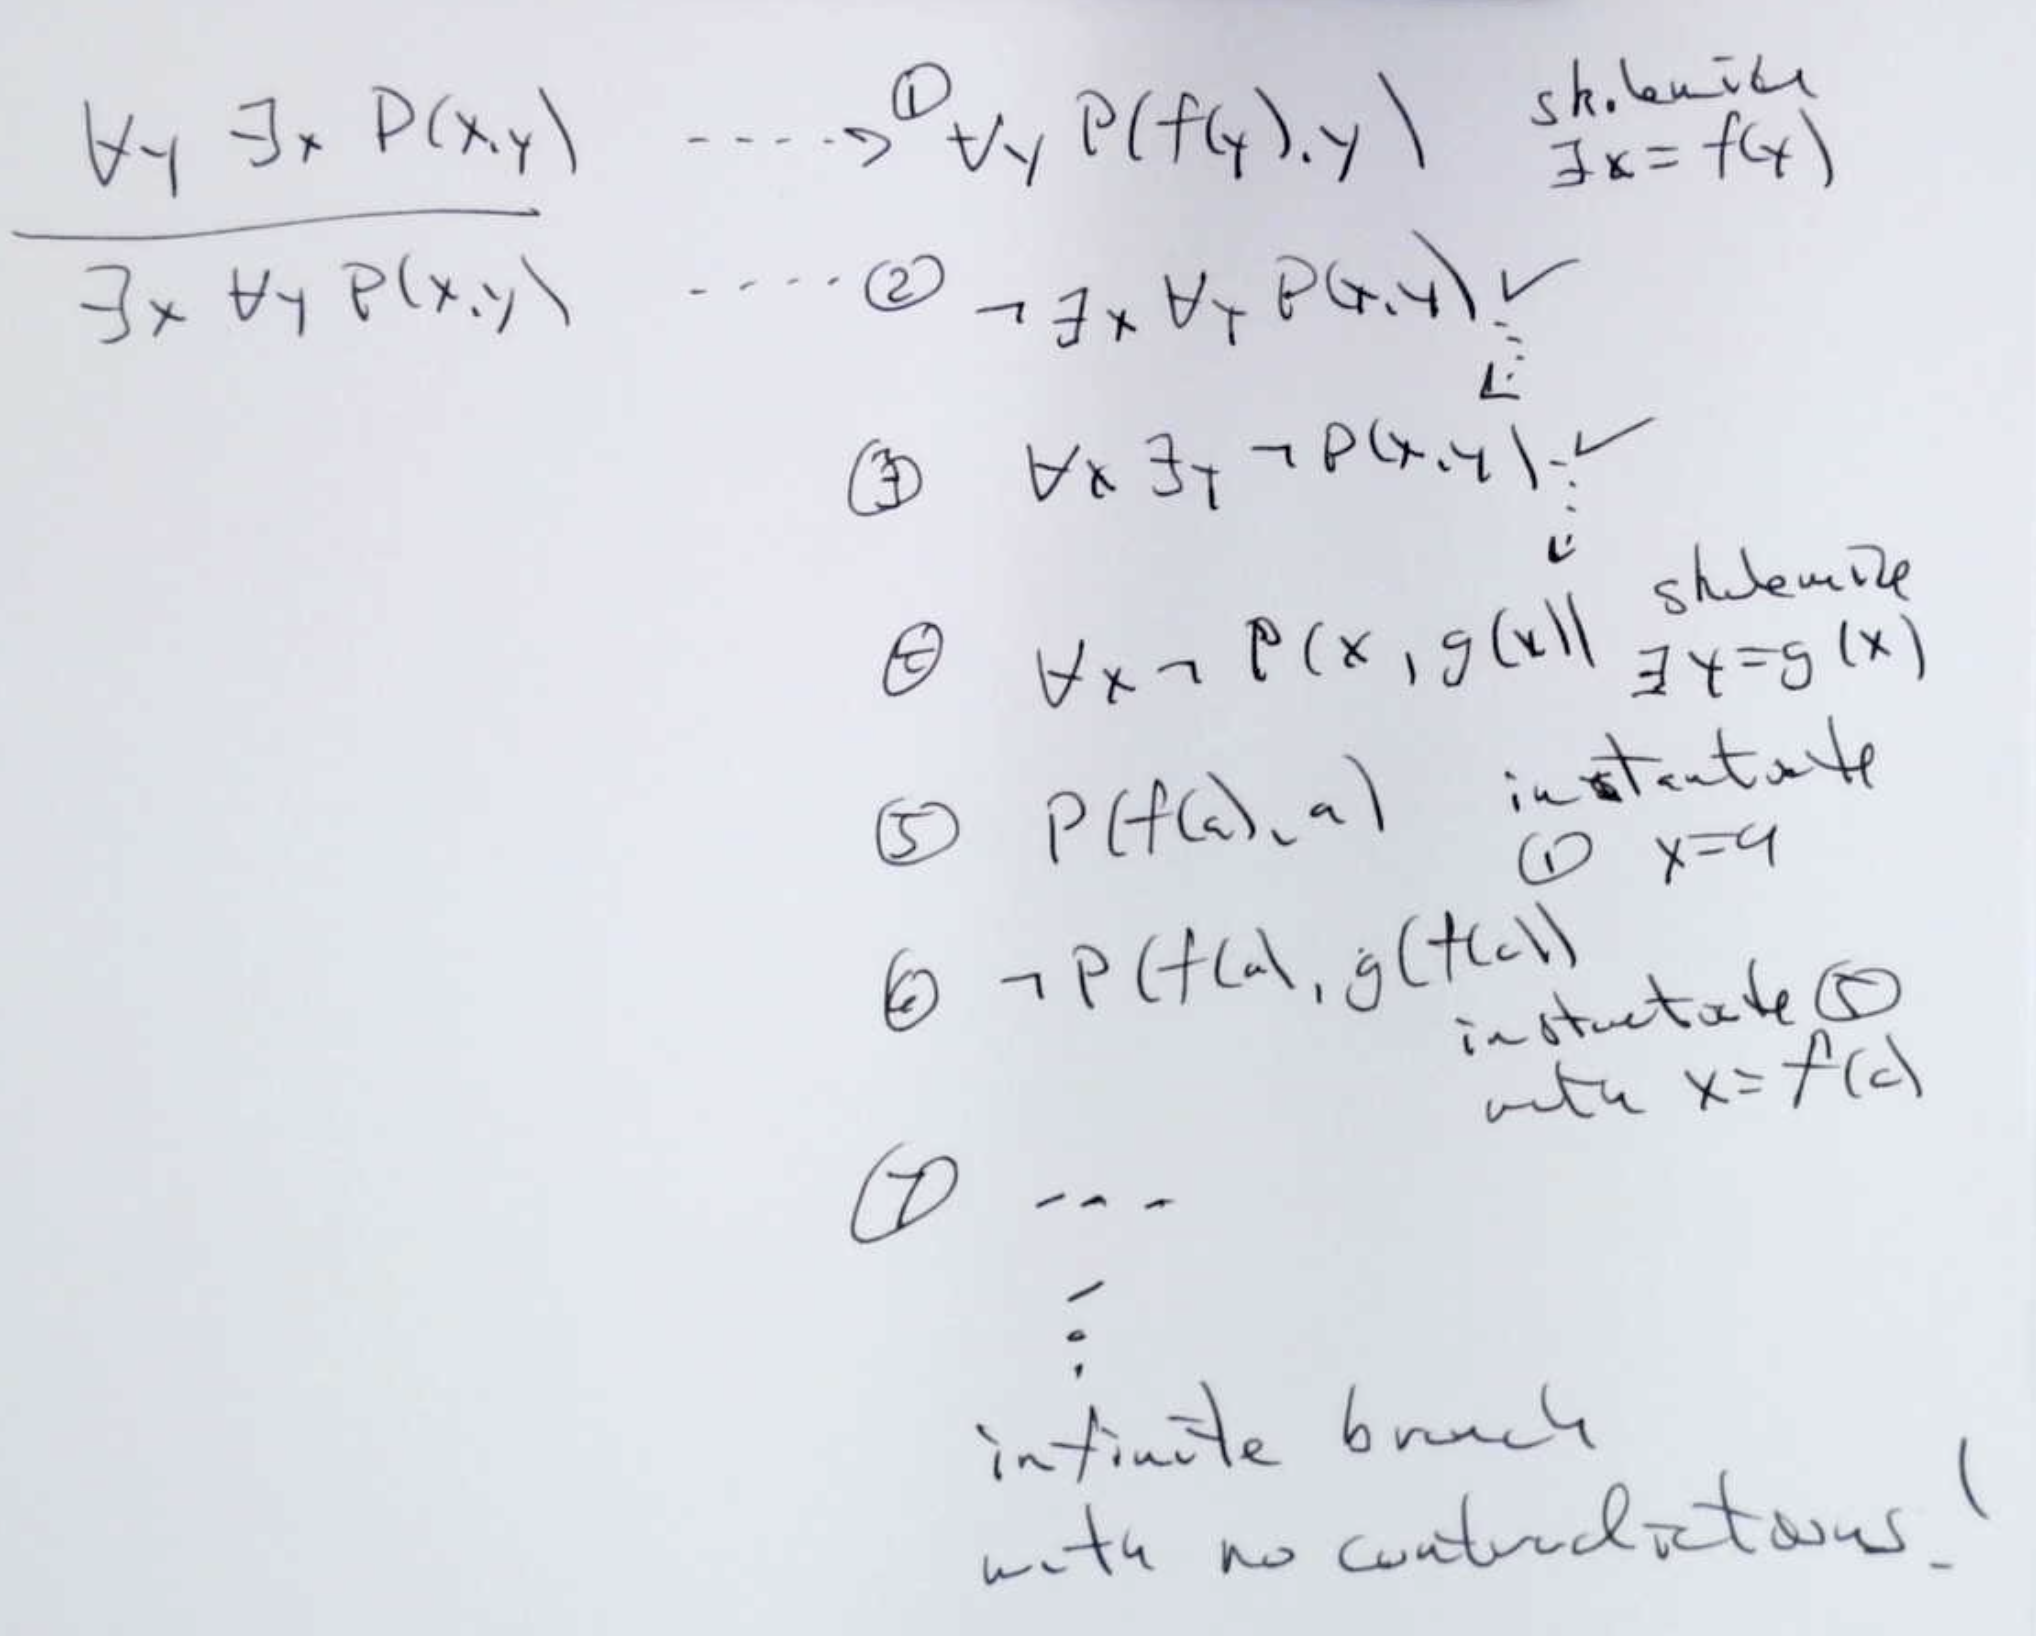 ∀y ∃x P(x,y)
∃x ∀y P(x,y)
① ∀y P(f(y),y) skolemize
∃x = f(y)
② ¬∃x ∀y P(x,y) ✓
③ ∀x ∃y ¬P(x,y) ✓
④ ∀x ¬P(x, g(x)) skolemize
∃y = g(x)
⑤ P(f(a), a) instantiate
① x=a
⑥ ¬P(f(a), g(f(a)))
instantiate ⑤
with x = f(a)
⑦ ---
infinite branch
with no contradictions!